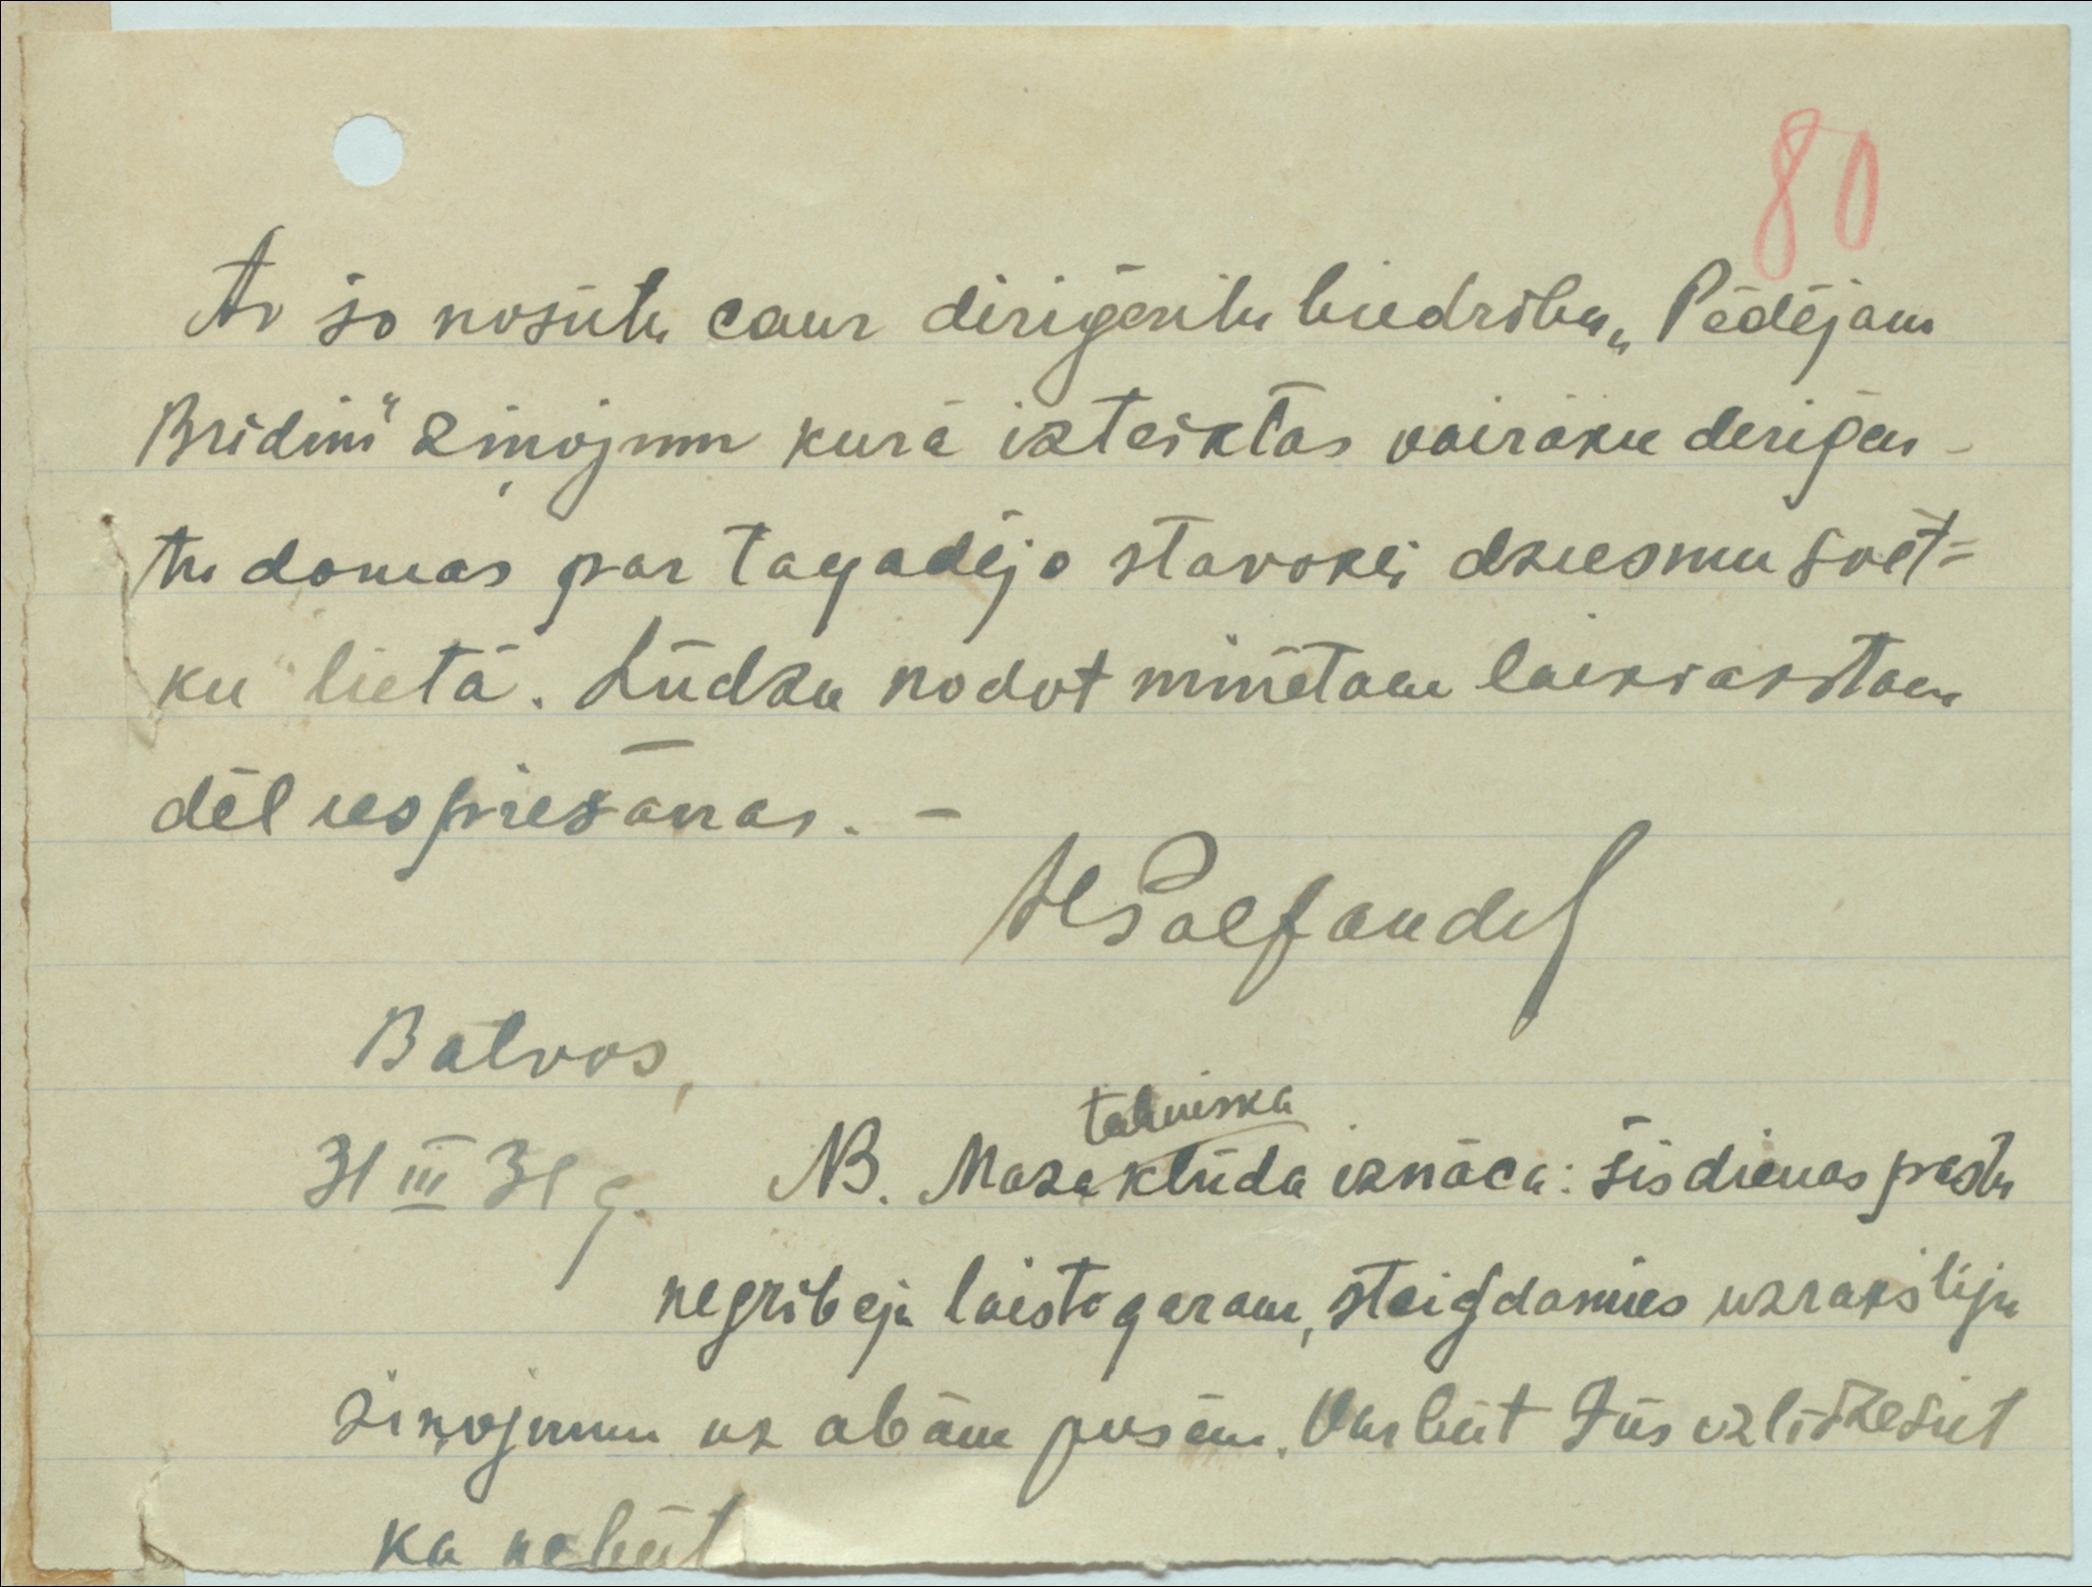 80
Ar šo nosūtu caur dirigentu biedrību „Pēdējam
Brīdim" ziņojumu kurā izteiktas vairāku dirigen-
tu domas par tagadējo stāvokli dziesmu svēt=
ku lietā. Lūdzu nodot minētam laikrakstam
dēļ iespiešanas. —
Balvos,
31 III 31 g.
tehniska
NB. Maza kļūda iznāca: šīs dienas pastu
negribēju laist garam, steigdamies uzrakstīju
ziņojumu uz abām pusēm. Varbūt Jūs izlīdzēsiet
ka nebūt